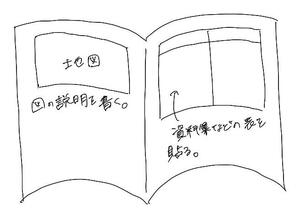 地図
図の説明を書く。
資料集などの表を
貼る。